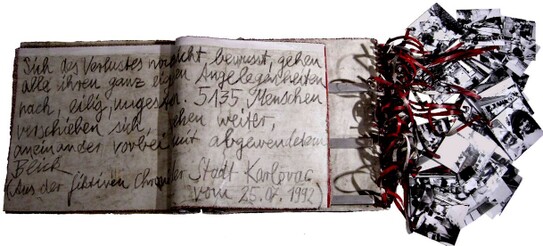 Sich des Verlustes noch nicht bewusst, gehen
alle ihren ganz eigenen Angelegenheiten
nach, eilig, ungestört. 5135 Menschen
verschieben sich, gehen weiter,
aneinander vorbei mit abgewendetem
Blick
(Aus der fiktiven Chronik der Stadt Karlovac
vom 25.07.1992)